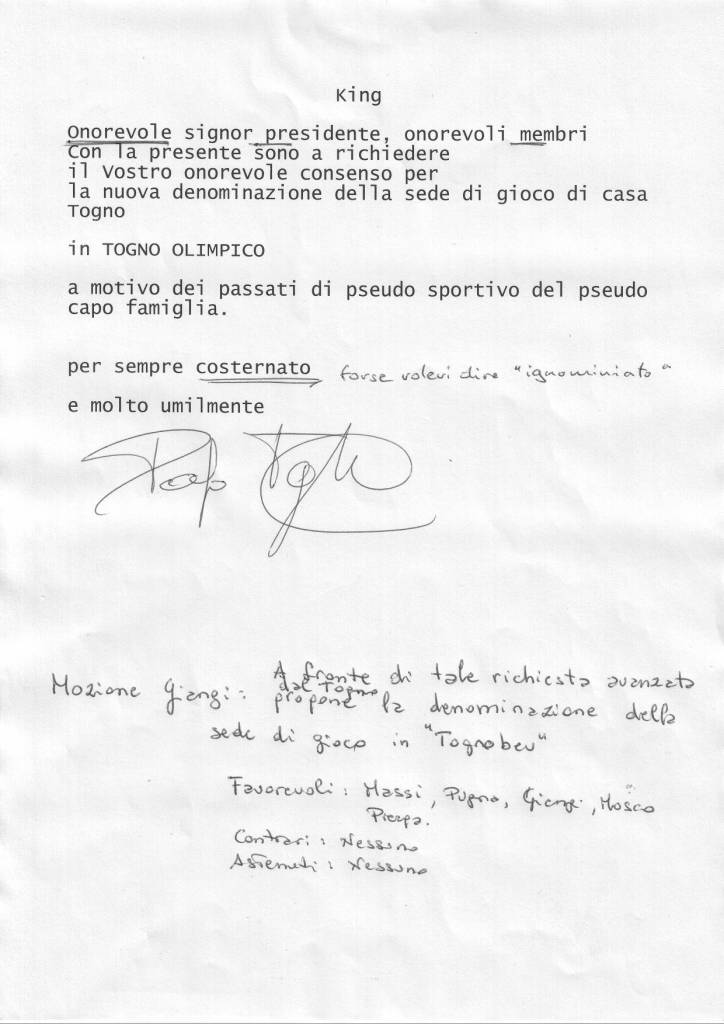 King
Onorevole signor presidente, onorevoli membri
Con la presente sono a richiedere
il Vostro onorevole consenso per
la nuova denominazione della sede di gioco di casa
Togno
in TOGNO OLIMPICO
a motivo dei passati di pseudo sportivo del pseudo
capo famiglia.
per sempre costernato forse volevi dire "ignominiato"
e molto umilmente
Mozione Giangi: A fronte di tale richiesta avanzata
dal Togno
propone la denominazione della
sede di gioco in "Tognobeu"
Favorevoli: Massi, Pugno, Giangi, Mosco
Pierpa.
Contrari: Nessuno
Astenuti: Nessuno